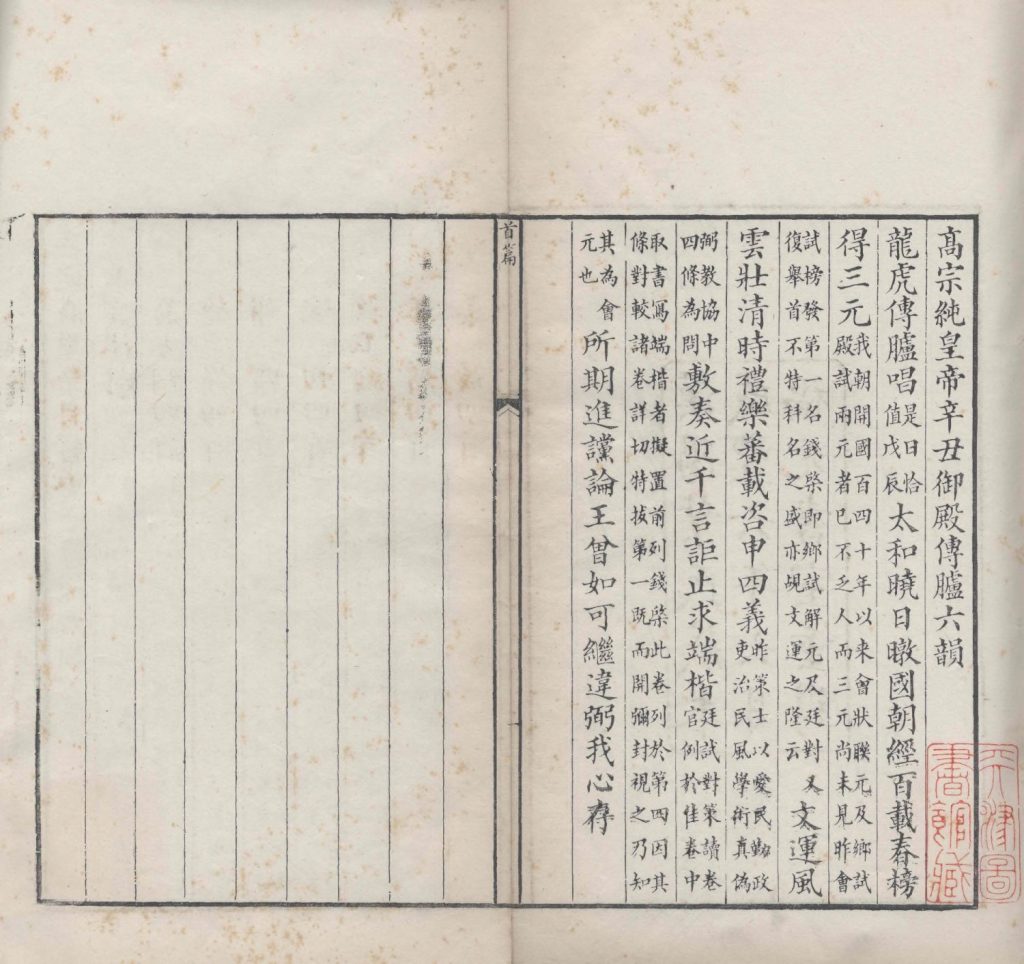 高宗純皇帝辛丑御殿傳臚六韻
龍虎傳臚唱是日恰值戊辰太和曉日暾國朝經百載春榜
得三元我朝開國百四十年以來會狀聯元及鄉試殿試兩元者已不乏人而三元尚未見昨會
試榜發第一名錢棨即鄉試解元及廷對又復舉首不特科名之盛亦覘文運之隆云文運風
雲壯清時禮樂蕃載咨申四義昨策士以愛民勤政吏治民風學術真偽
弼教協中四條為問敷奏近千言詎止求端楷廷試對策讀卷官例於佳卷中
取書寫端楷者擬置前列錢棨此卷列於第四因其條對較諸卷詳切特拔第一既而開彌封視之乃知
其為會元也所期進讜論王曾如可繼違弼我心存
首篇
天津圖書館藏